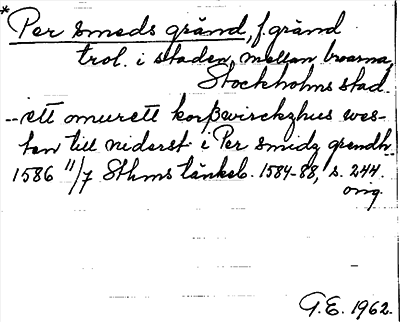 * Per smeds gränd, f. gränd
trol. i staden mellan broarna,
Stockholms stad.
-- ett omurett korßwirckzhus wes-
ten till niderst i Per smidz grendh --
1586 11/7 Sthms tänkeb. 1584-88, s. 244.
orig.
G.E. 1962.